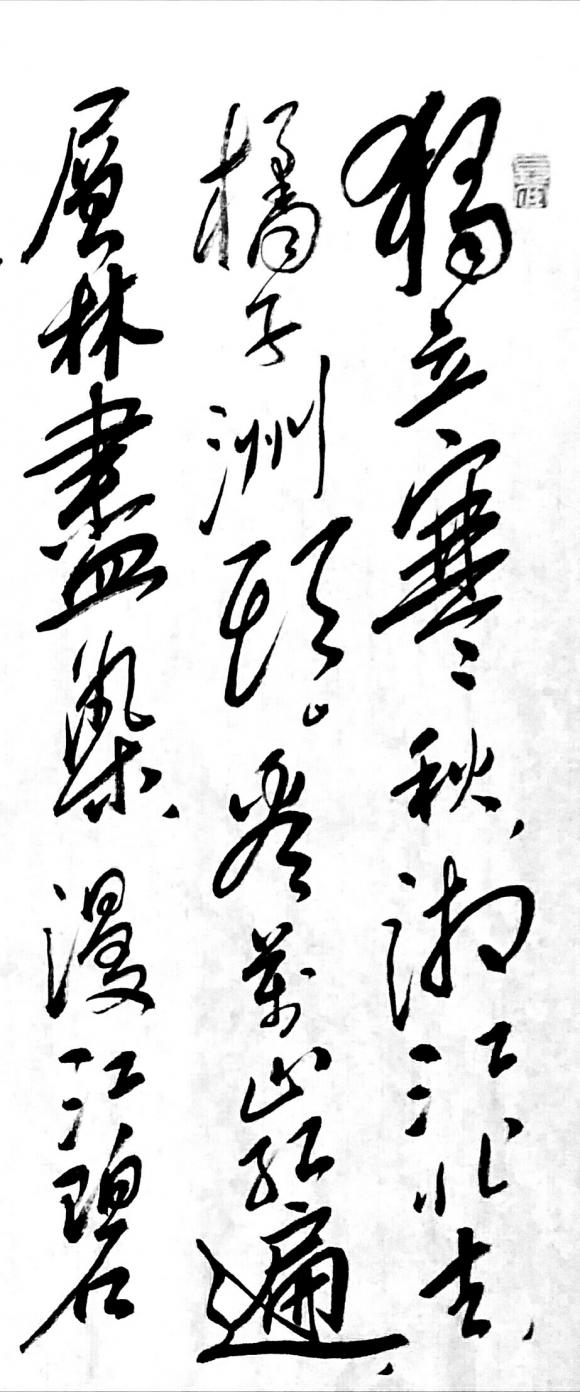 獨立寒秋，湘江北去，
橘子洲頭。看萬山紅遍，
層林盡染，漫江碧